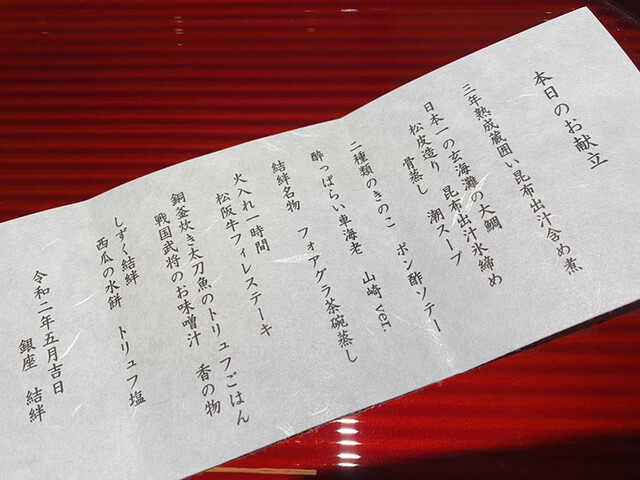 本日のお献立
三年熟成蔵囲い昆布出汁含め煮
日本一の玄海灘の大鯛 昆布出汁氷締め
松皮造り 骨蒸し 潮スープ
二種類のきのこ ポン酢ソテー
酔っぱらい車海老 山崎ver.
結絆名物 フォアグラ茶碗蒸し
火入れ一時間
松阪牛フィレステーキ
銅釜炊き太刀魚のトリュフごはん
戦国武将のお味噌汁 香の物
しずく結絆
西瓜の水餅 トリュフ塩
令和二年五月吉日
銀座 結絆